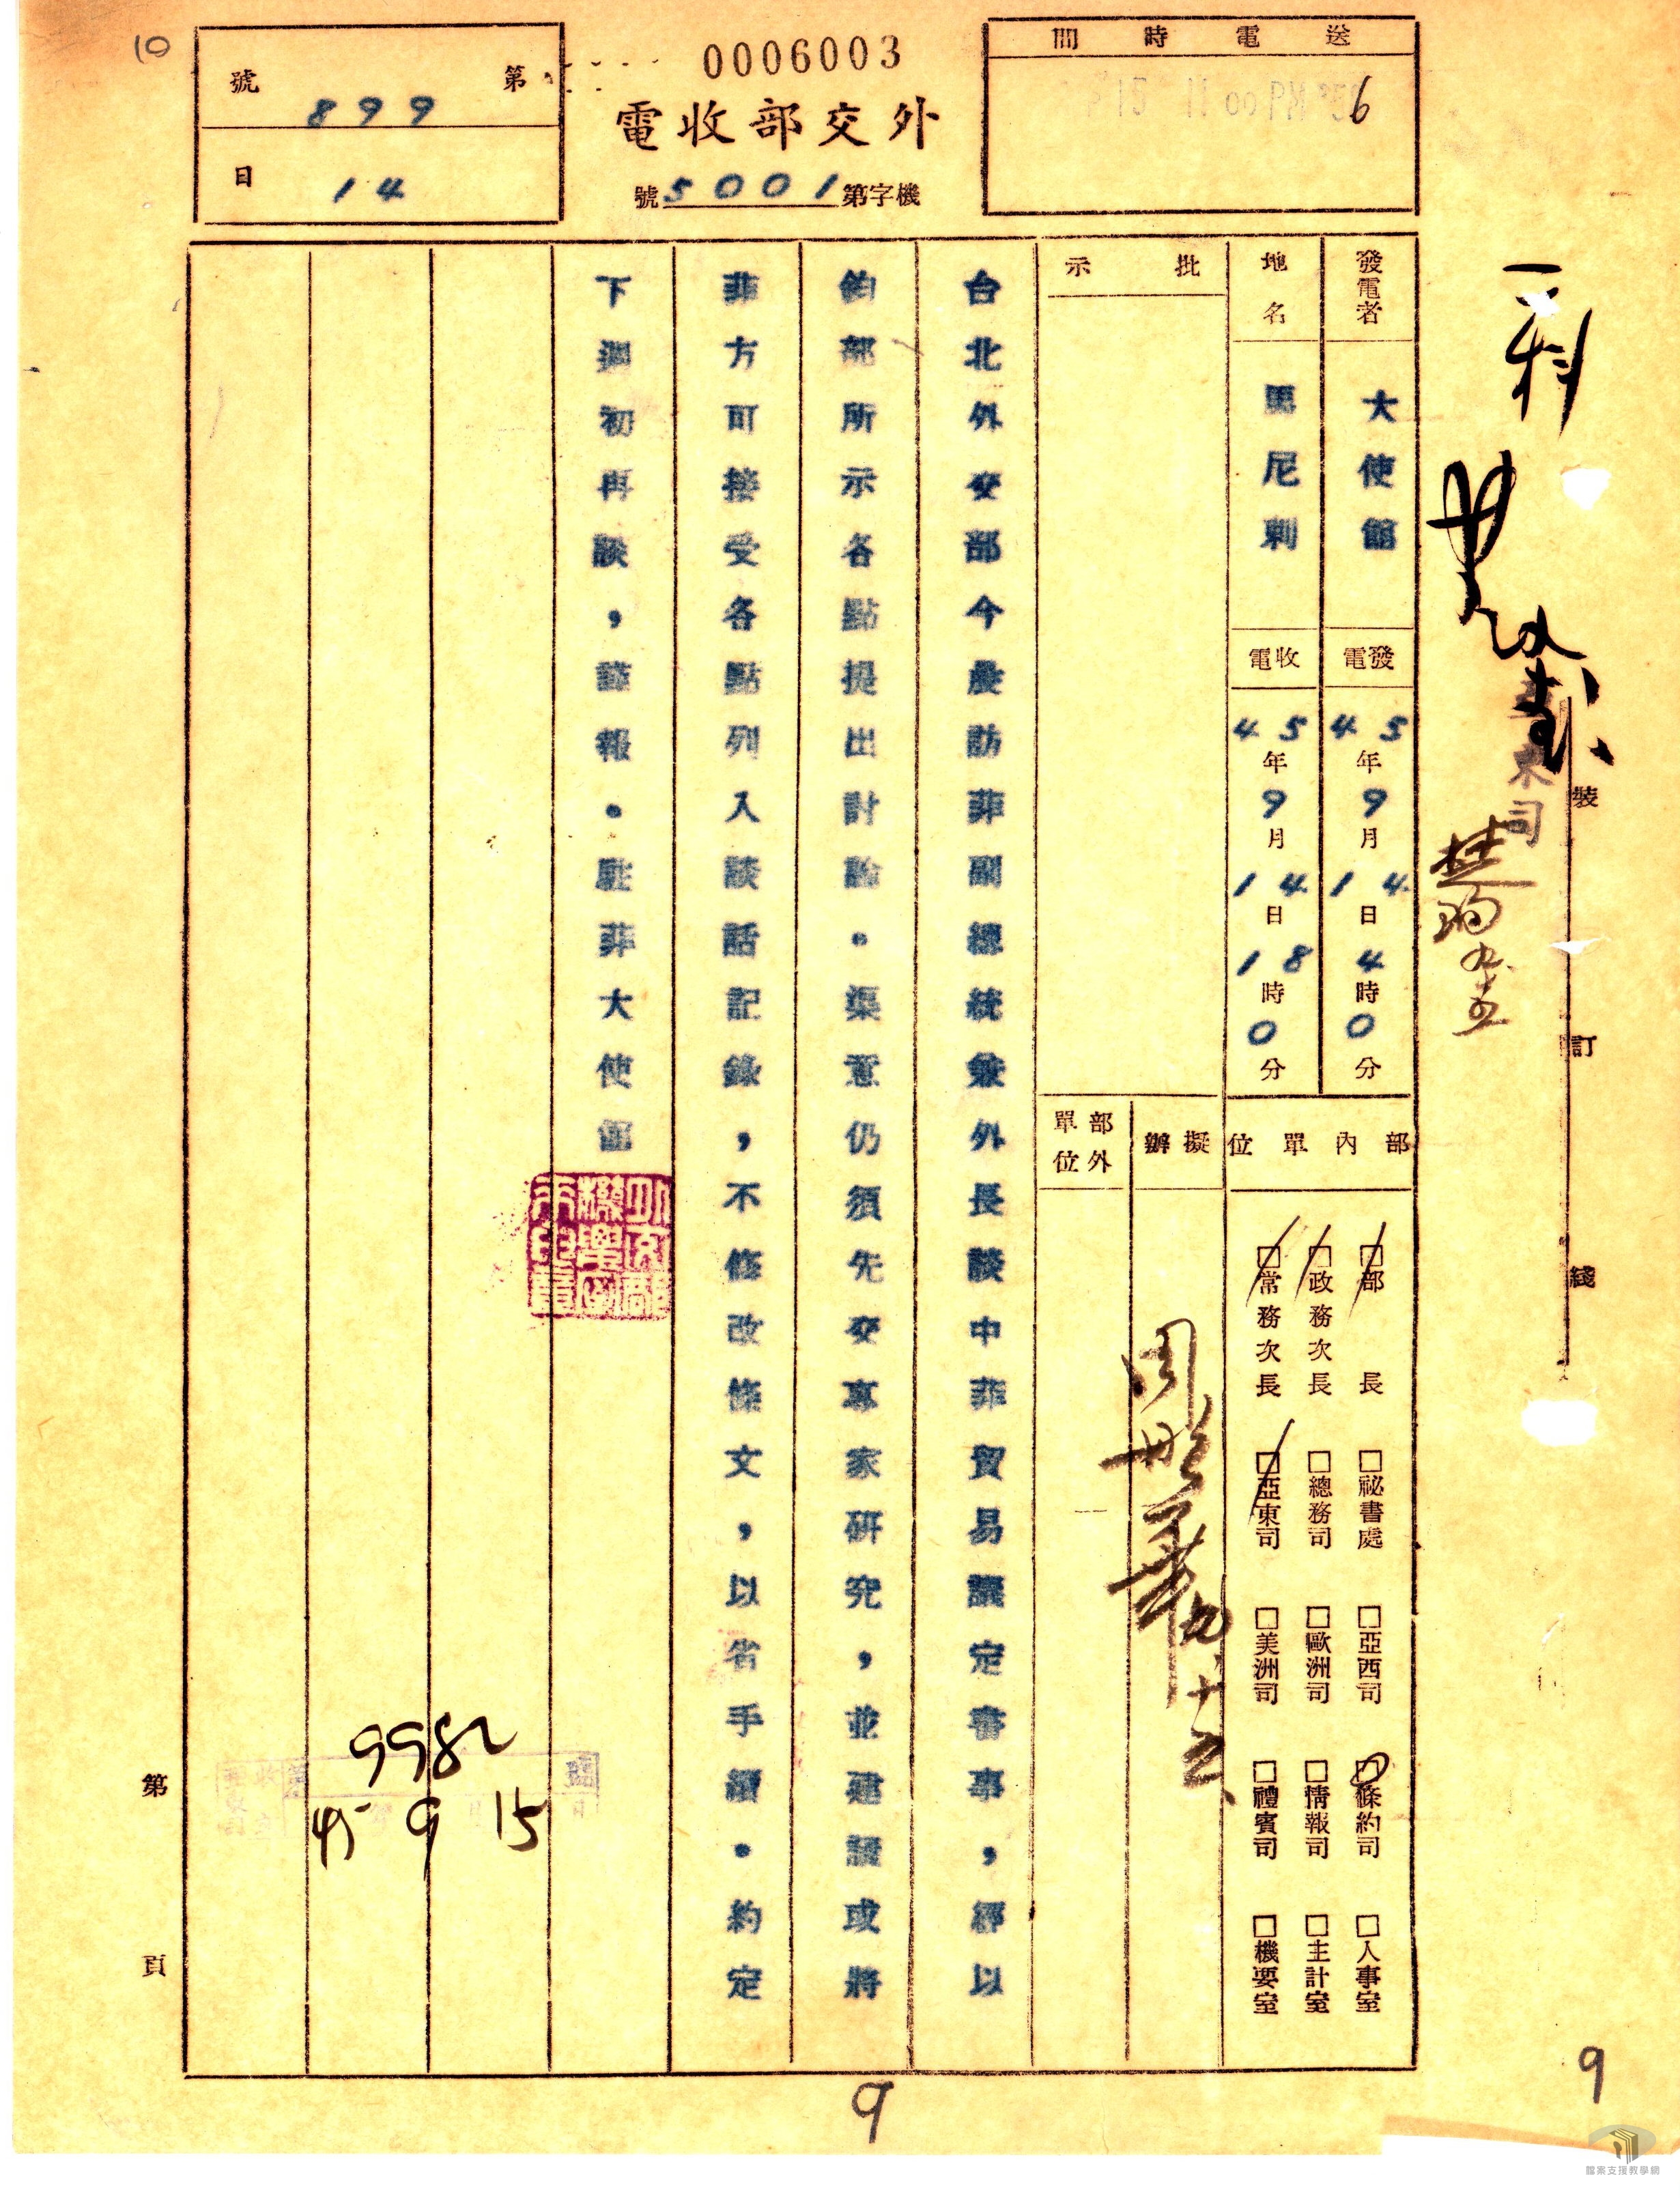 10
第899號
14日
0006003
外交部收電
機字第5001號
送電時間
6
發電者
大使館
地名
馬尼剌
發電
45年9月14日4時0分
收電
45年9月14日18時0分
批示
部內單位
擬辦
部外單位
部長
政務次長
常務次長
祕書處
總務司
亞東司
亞西司
歐洲司
美洲司
條約司
情報司
禮賓司
人事室
主計室
機要室
台北外交部今晨訪菲副總統兼外長談中菲貿易議定書事，經以
鈞部所示各點提出討論。渠意仍須先交專家研究，並建議或將
菲方可接受各點列入談話記錄，不修改條文，以省手續。約定
下週初再談，謹報。駐菲大使館
一科
裝
訂
綫
9982
45 9 15
第
頁
9
9
檔案支援教學網